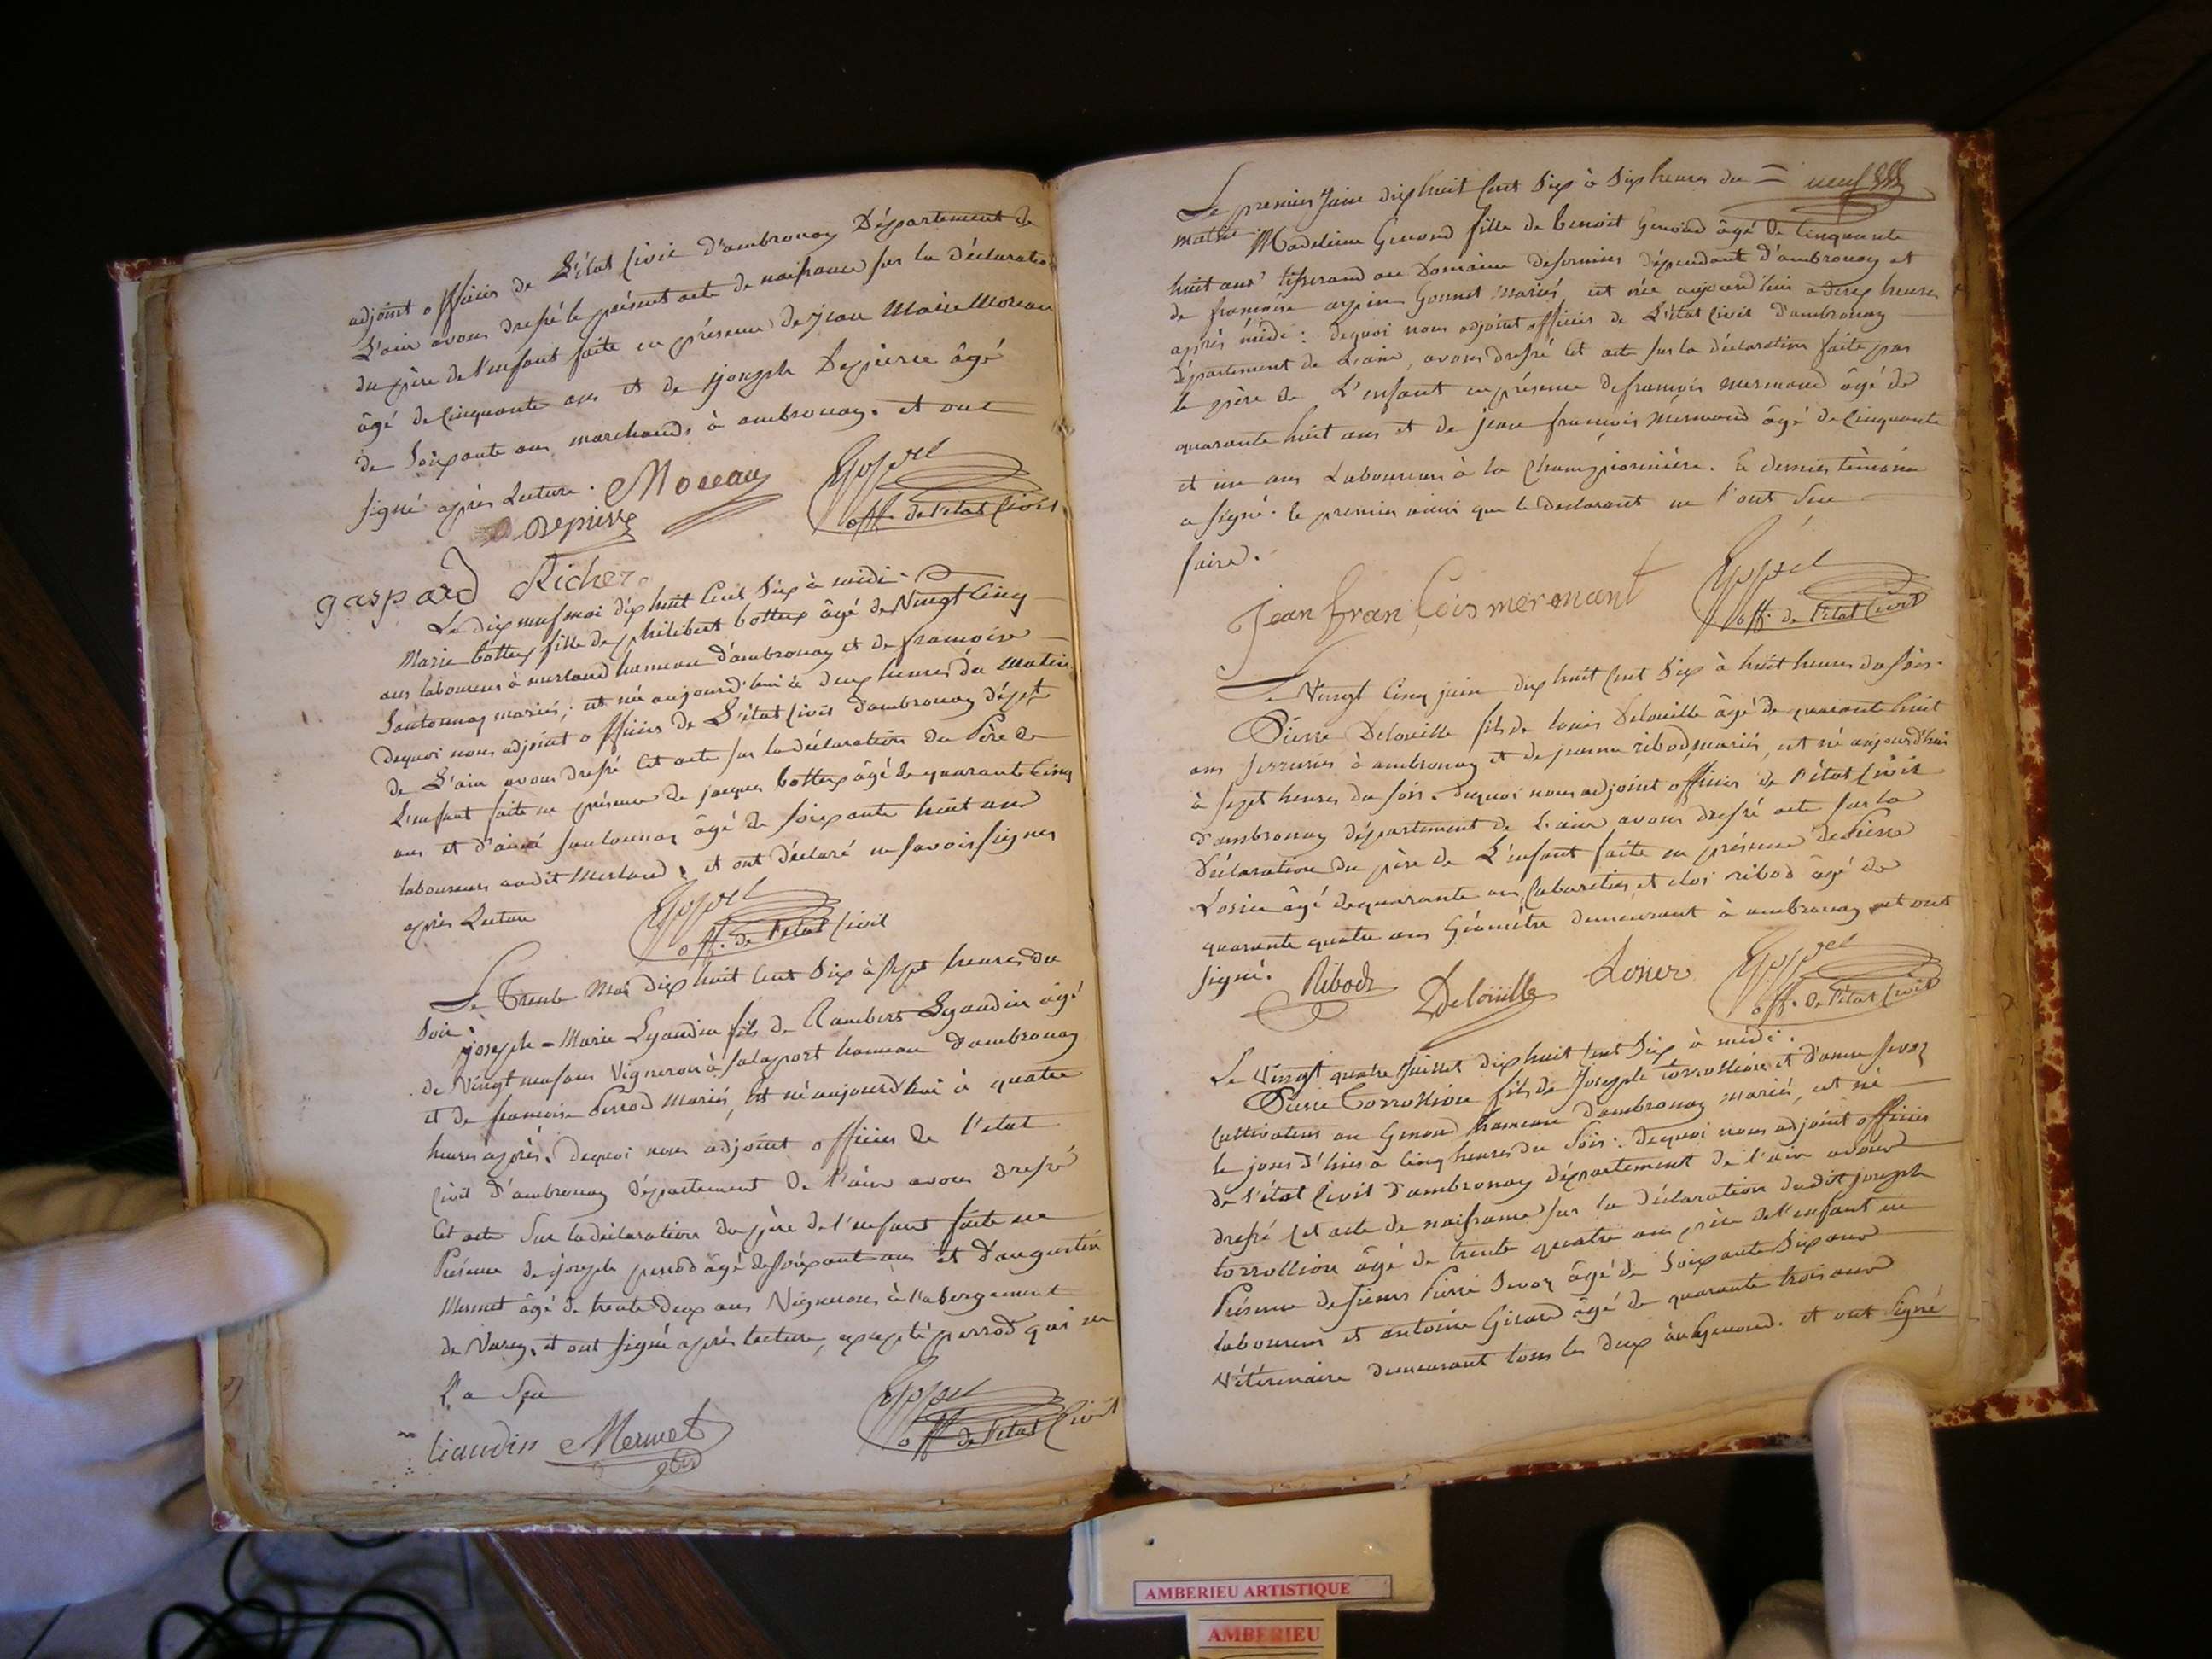 adjoint officier de L'état Civil d'ambronay Département de
L'ain avons dressé le présent acte de naissance sur la déclaration
du père de l'enfant faite en présence de jean Marie Moreau
âgé de Cinquante ans et de joseph Depierre âgé
de Soixante ans marchands à ambronay. et ont
signé après Lecture. Moreau
Depierre
off. de l'état Civil
gaspard Richer
Le dix neuf mai dix huit Cent Dix à midi
Marie bottex fille de philibert bottex âgé de Vingt Cinq
ans laboureur à merland hameau d'ambronay et de francoise
Soutonnay mariés; est né aujourd'hui à deux heures du Matin
Dequoi nous adjoint officier de L'état Civil d'ambronay dépt
de L'ain avons dressé Cet acte sur la déclaration du Père de
L'enfant faite en présence de jacques bottex âgé de quarante Cinq
ans et d'aimé soutonnay âgé de soixante huit ans
laboureurs audit Merland, et ont déclaré ne savoir signer
après Lecture
off. de l'état Civil
Le Trente Mai dix huit Cent Dix à sept heures du
Soir.
joseph-Marie Lyaudin fils de Rambert Lyaudin âgé
de Vingt neuf ans Vigneron à salaport hameau d'ambronay
et de francoise Perrod Mariés, Est né aujourd'hui à quatre
heures après. Dequoi nous adjoint officier de l'état
Civil d'ambronay Département de l'ain avons dressé
Cet acte Sur la déclaration du père de l'enfant faite en
Présence de joseph perrod âgé de soixante ans et d'augustin
Mermet âgé de trente Deux ans Vignerons à l'abergement
de Varey, et ont signé après lecture, excepté perrod qui ne
L'a Su
liaudin Mermet
off de l'état Civil
Le premier Juin dix huit Cent Dix à Dix heures du = neuf
matin Madeleine Genoud fille de benoit Genoud âgé de Cinquante
huit ans tisserand au Domaine dépendant d'ambronay et
de francoise Gonnet Mariés, est née aujourd'hui a deux heures
après midi: dequoi nous adjoint officier de L'état Civil d'ambronay
département de L'ain, avons dressé Cet acte sur la déclaration faite par
le père de L'enfant en présence de francois mermand âgé de
quarante huit ans et de jean francois Mermand âgé de Cinquante
et un ans Laboureurs à la Championnière. Le dernier témoin
a signé. le premier ainsi que le Declarant ne l'ont Su
faire.
Jean franCois mermant
off. de l'état Civil
Le Vingt Cinq juin dix huit Cent Dix à huit heures du soir.
Pierre Delouille fils de louis Delouille âgé de quarante huit
ans serrurier à ambronay et de jeanne ribod, mariés, est né aujourd'hui
à sept heures du soir. Dequoi nous adjoint officier de l'état Civil
d'ambronay département de L'ain avons dressé acte sur la
Déclaration du père de L'enfant faite en présence de Pierre
Losier âgé de quarante ans Cabaretier et ribod âgé de
quarante quatre ans Géomètre demeurant à ambronay et ont
signé. Ribod Delouille Losier
off. de l'état Civil
Le Vingt quatre Juillet dix huit Cent Dix à midi.
Pierre Corrollion fils de Joseph Corrollion et d'anne
Cultivateur au Genoud hameau d'ambronay mariés, est né
le jour d'hier à Cinq heures du Soir. Dequoi nous adjoint officier
de l'état Civil d'ambronay département de l'ain avons
dressé Cet acte de naissance sur la déclaration dudit joseph
Corrollion âgé de trente quatre ans père de l'enfant en
Présence de sieurs Pierre âgé de soixante Dix ans
laboureur et antoine Girard âgé de quarante trois ans
Vétérinaire demeurant tous les deux au Genoud. et ont signé
AMBERIEU ARTISTIQUE
AMBERIEU